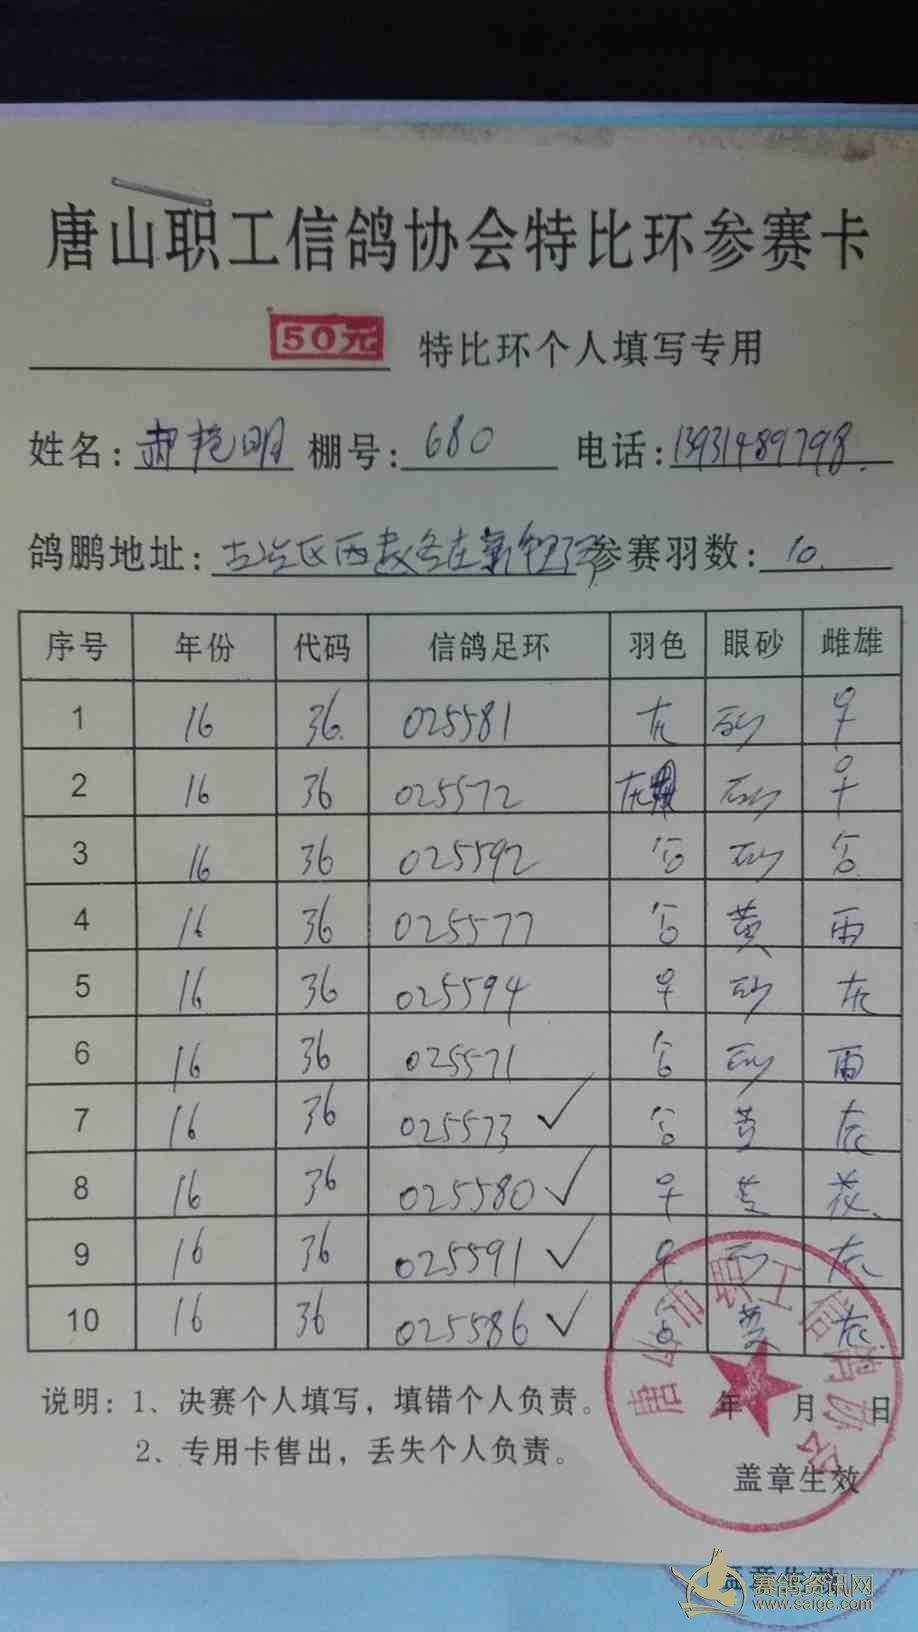 唐山职工信鸽协会特比环参赛卡
50元 特比环个人填写专用
姓名：郝艳明 棚号：680 电话：13931489798
鸽鹏地址：古冶区西 各庄 参赛羽数：10
序号 年份 代码 信鸽足环 羽色 眼砂 雌雄
1 16 36 025581 灰 砂 ♀
2 16 36 025572 灰 砂 ♀
3 16 36 025592 砂
4 16 36 025577 黄 雨
5 16 36 025594 ♀ 砂 灰
6 16 36 025571 砂 雨
7 16 36 025573 ✓ 黄 灰
8 16 36 025580 ✓ ♀ 黄 花
9 16 36 025591 ✓ ♀ 砂 灰
10 16 36 025586 ✓ 黄 灰
说明：1、决赛个人填写，填错个人负责。
2、专用卡售出，丢失个人负责。
年 月 日
盖章生效
唐山市职工信鸽协会
盖章生效
赛鸽资讯网
www.saige.com